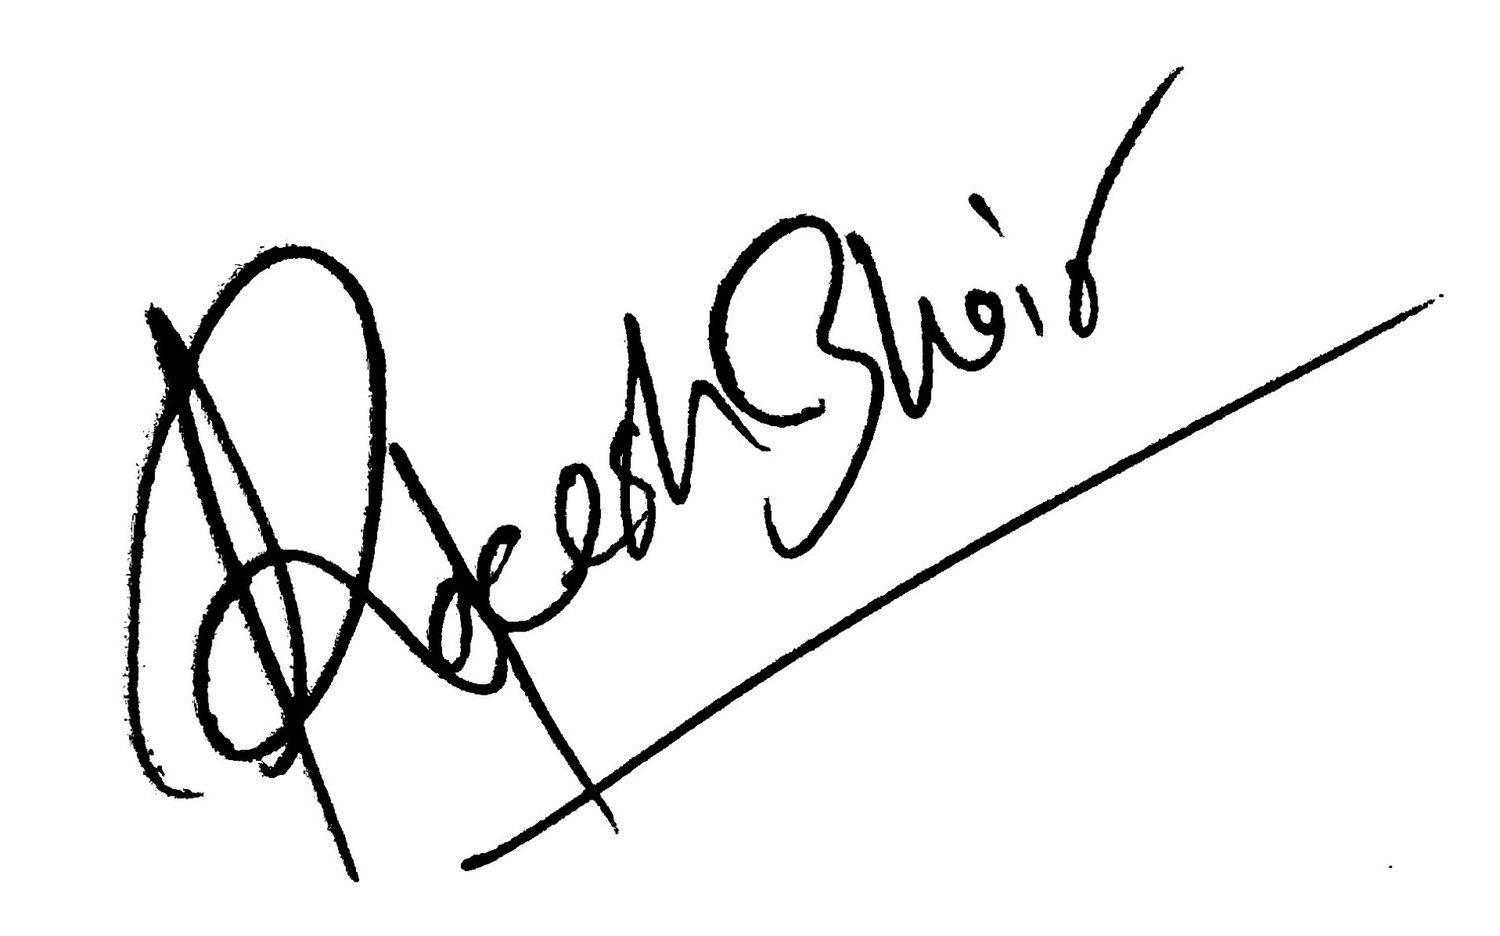 Rakesh Bhoir